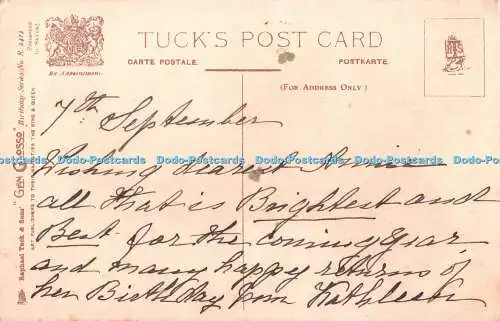 TUCK'S POST CARD
CARTE POSTALE.
POSTKARTE.
By Appointment.
(FOR ADDRESS ONLY)
Raphael Tuck & Sons' "GEM GLOSSO" Birthday Series No.
ART PUBLISHERS TO THEIR MAJESTIES THE KING & QUEEN
7th September
Wishing dearest
all that is Brightest and
Best for the coming Year
and many happy returns of
her Birthday from Kathleen
Dodo-Postcards Dodo-Postcards Dodo-Postcards Dodo-Postcards Dodo-Postcards Dodo-Postcards